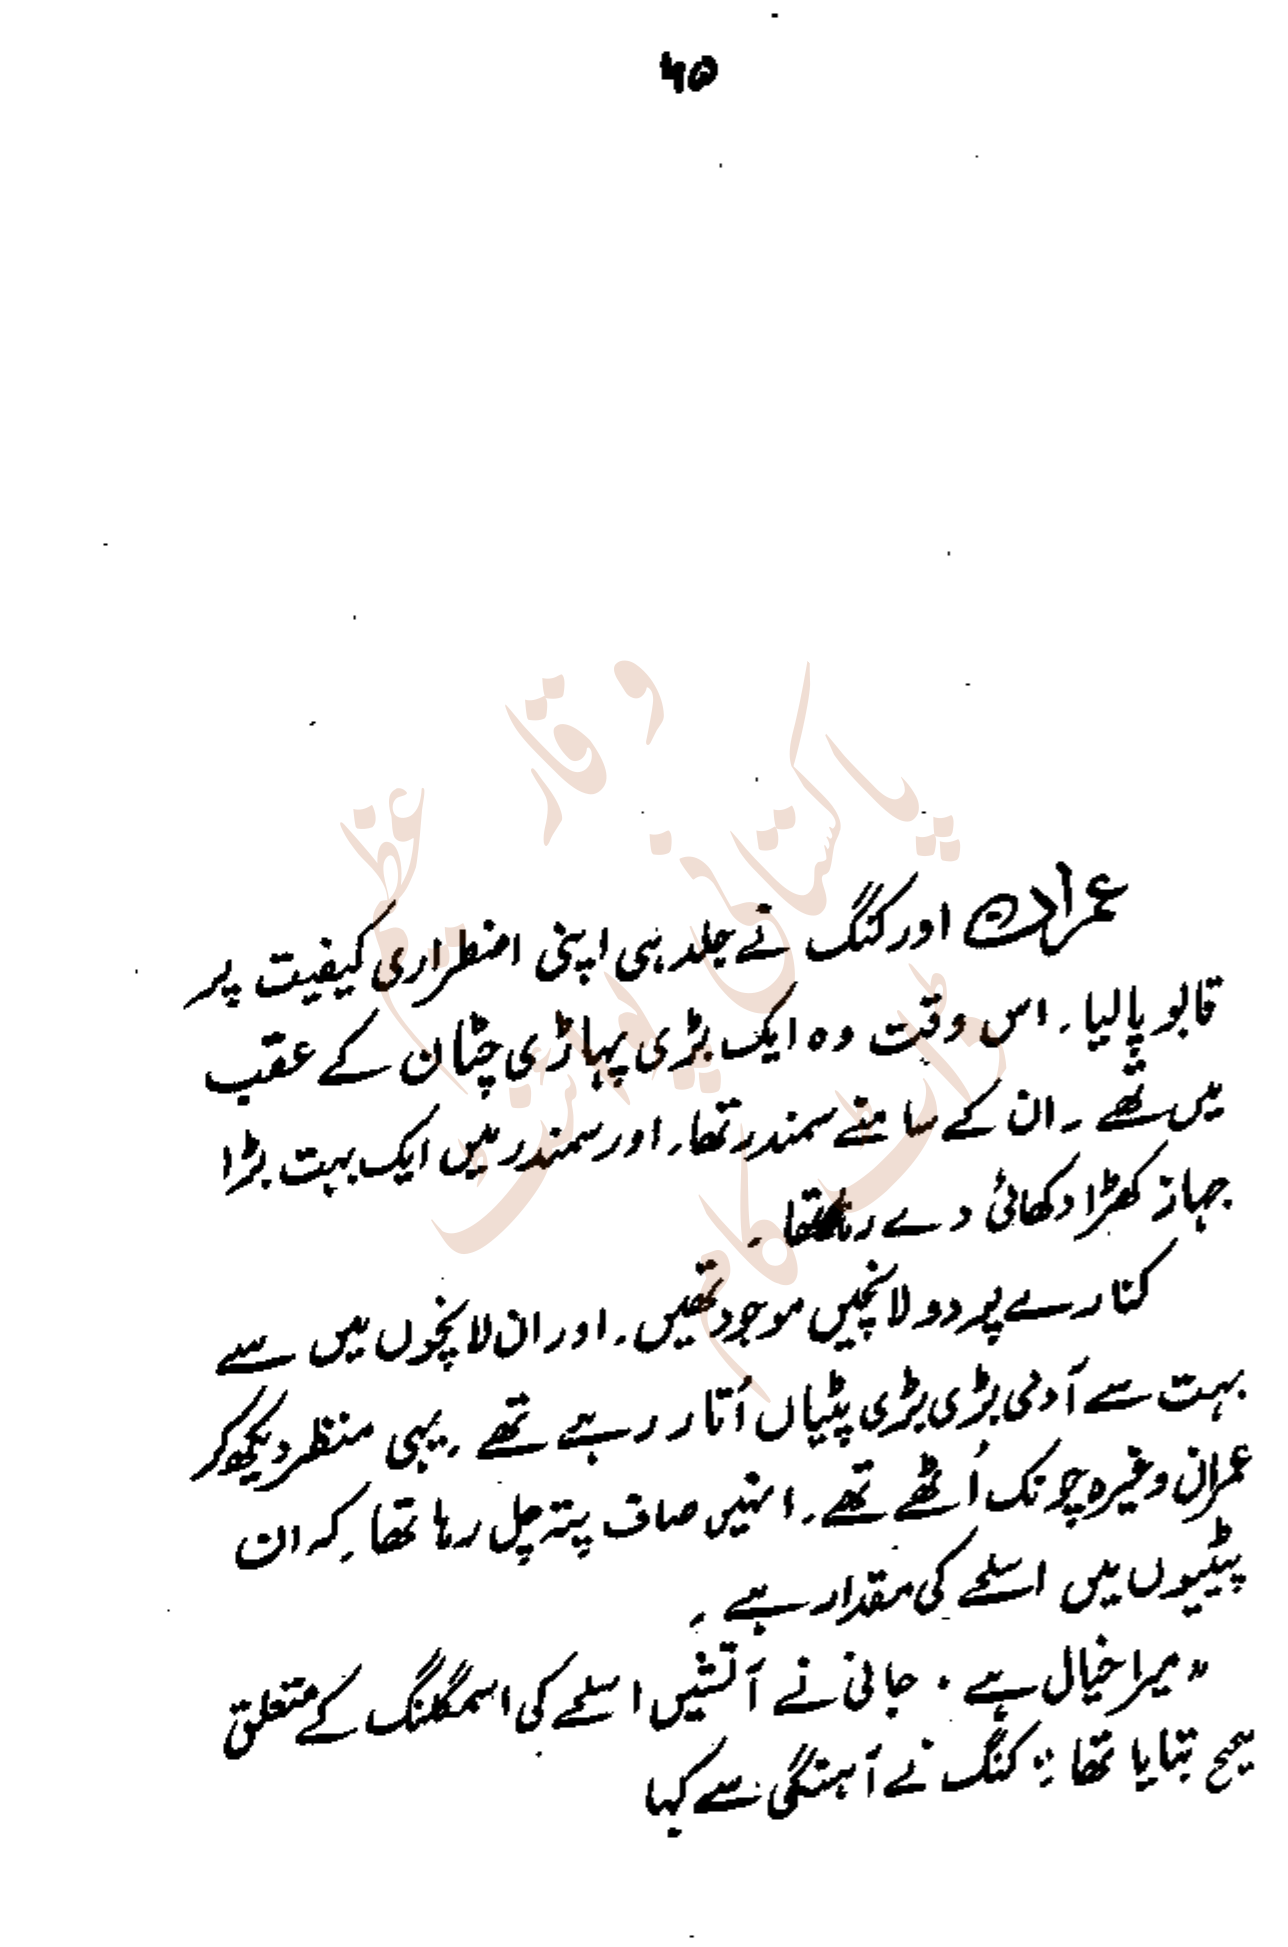 ۴۵
عمران اور کنگ نے جلد ہی اپنی اضطراری کیفیت پر
قابو پا لیا۔ اس وقت وہ ایک بڑی پہاڑی چٹان کے عقب
میں تھے۔ ان کے سامنے سمندر تھا۔ اور سمندر میں ایک بہت بڑا
جہاز کھڑا دکھائی دے رہا تھا۔
کنارے پر دو لانچیں موجود تھیں۔ اور ان لانچوں میں سے
بہت سے آدمی بڑی بڑی پٹیاں اُتار رہے تھے۔ یہی منظر دیکھ کر
عمران وغیرہ چونک اُٹھے تھے۔ انہیں صاف پتہ چل رہا تھا۔ کہ ان
پیٹیوں میں اسلحے کی مقدار ہے۔
"میرا خیال ہے۔ جانی نے آتشیں اسلحے کی اسمگلنگ کے متعلق
صحیح بتایا تھا" کنگ نے آہستگی سے کہا
وقار عظیم
پاکستانی پوائنٹ
ڈاٹ کام